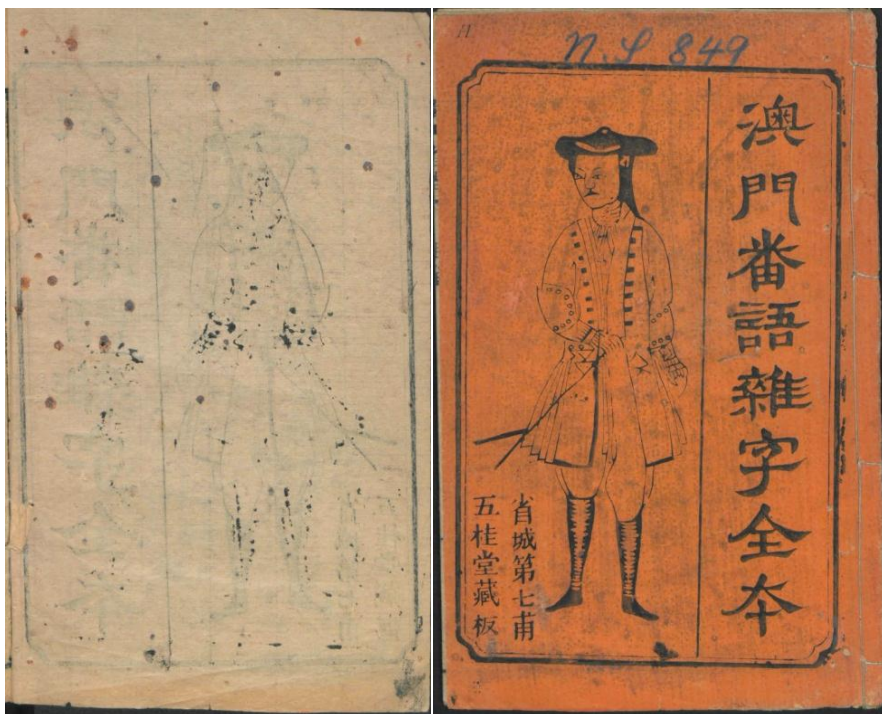 11
N.S 849
澳門番語雜字全本
省城第七甫
五桂堂藏板